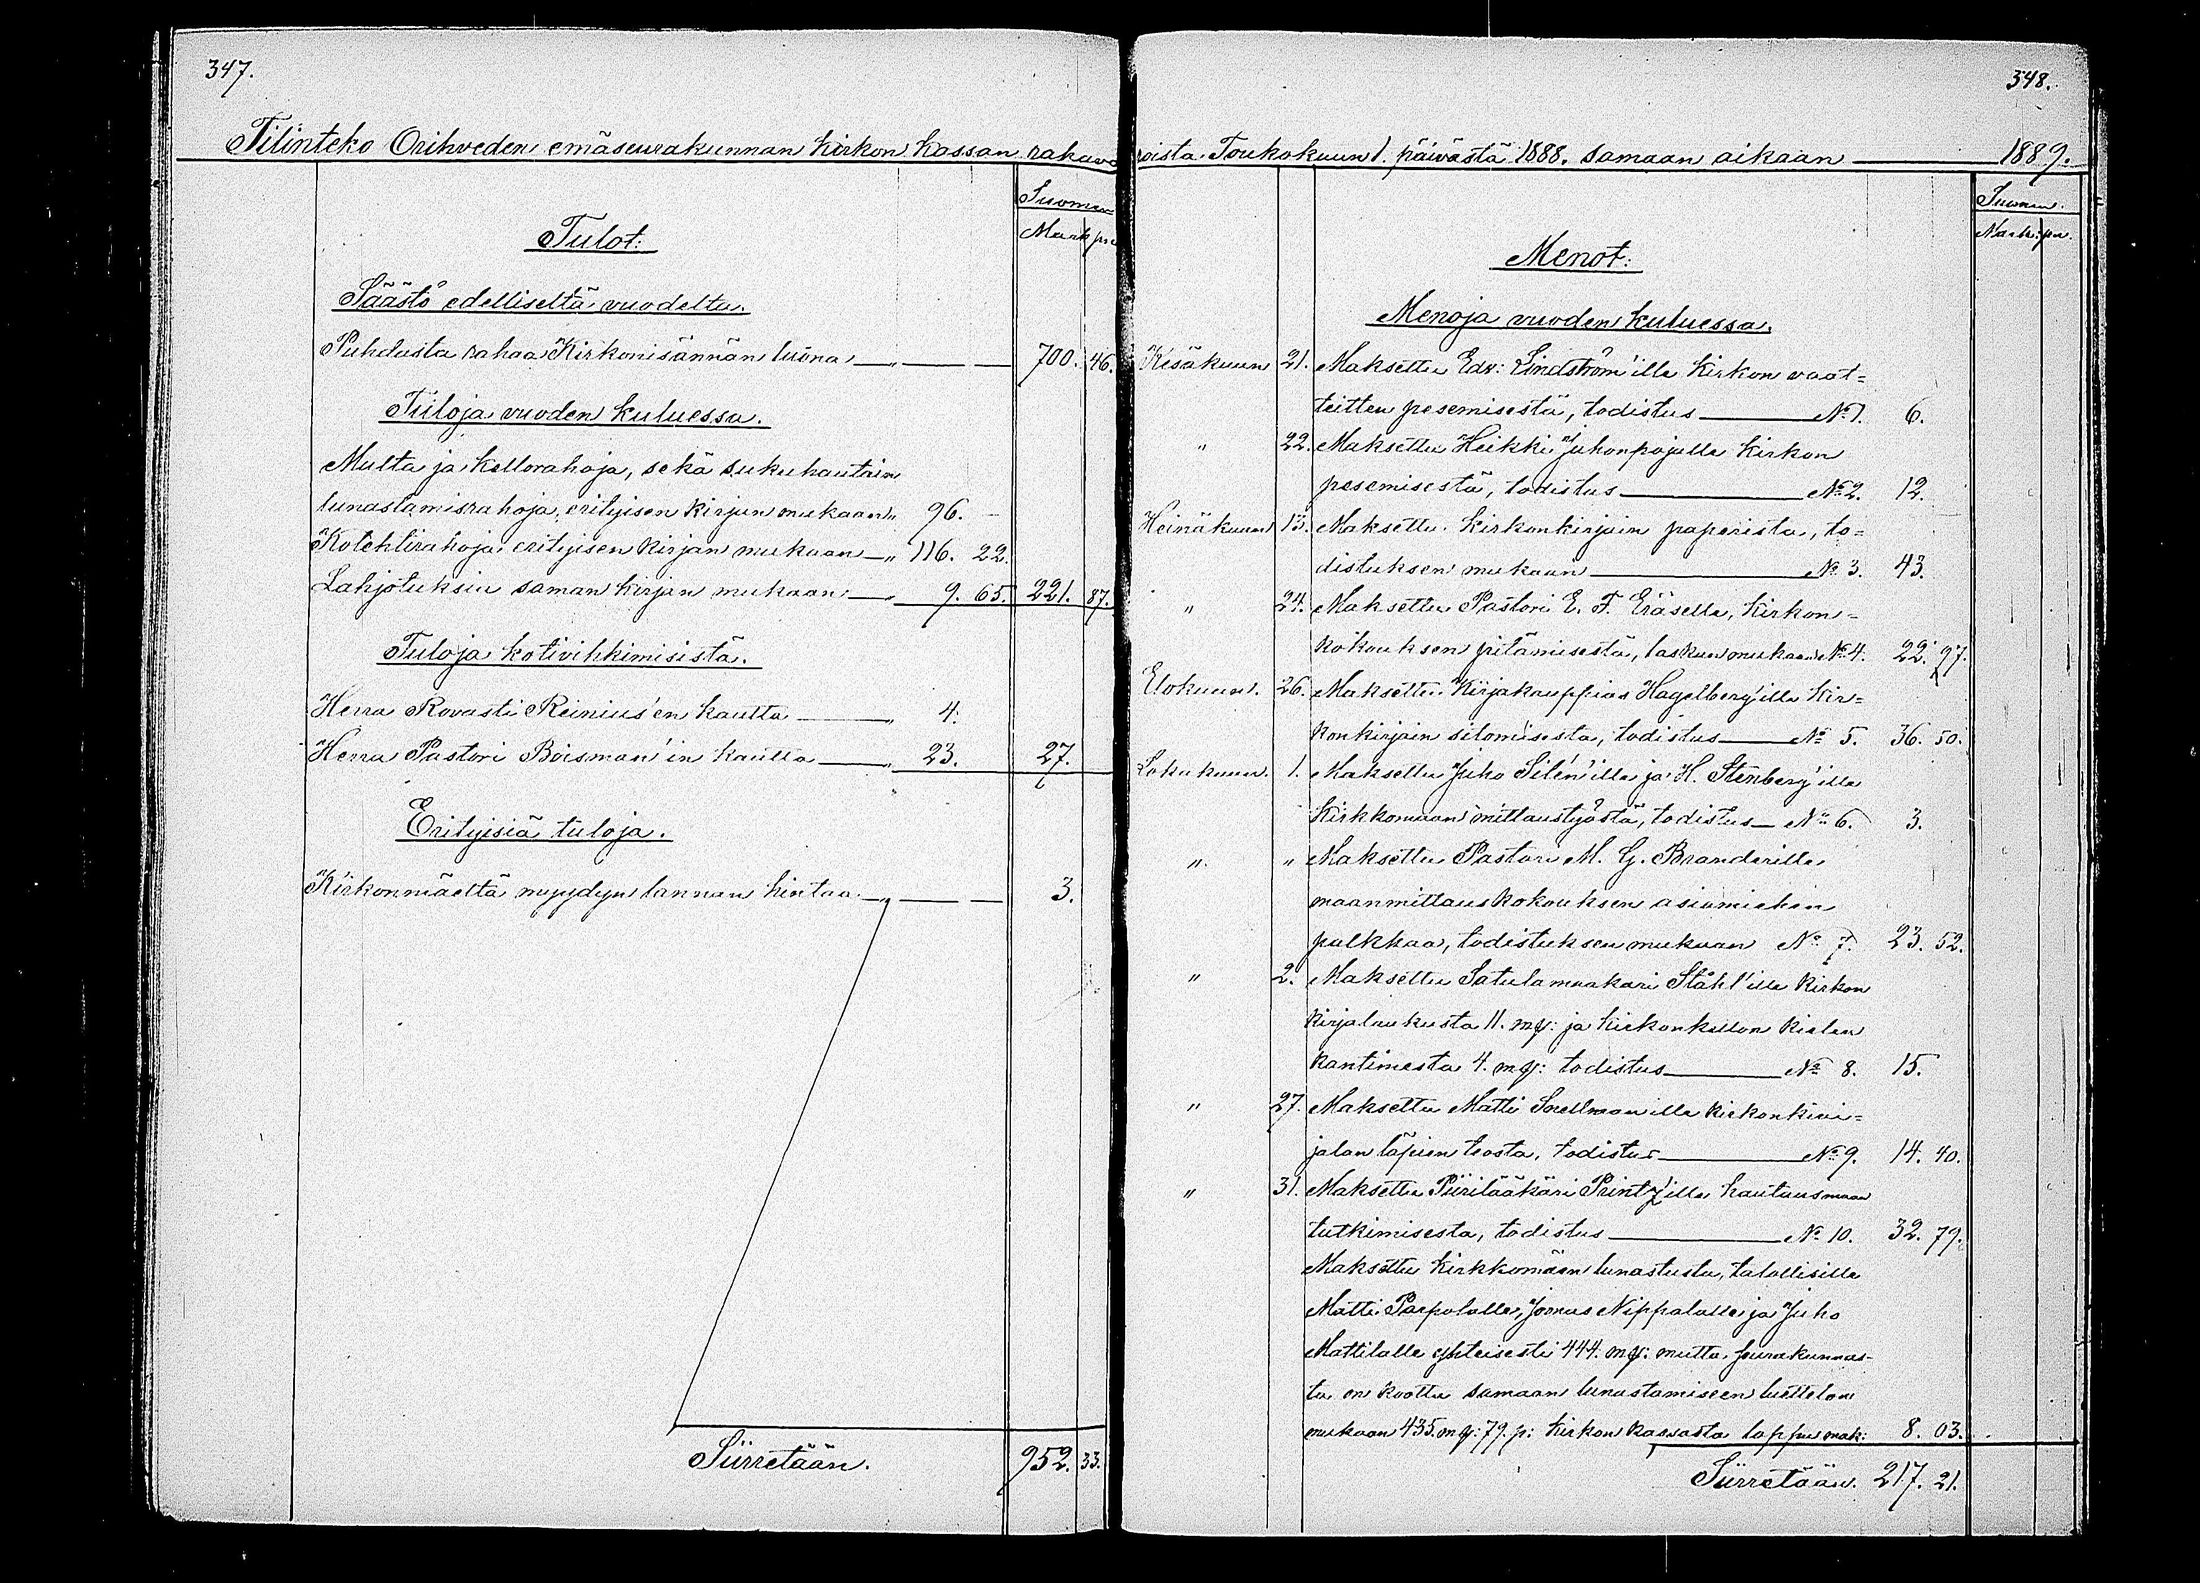 347.
Tilinteko Orihveden emäseurakunnan kirkon kassan rahava
Suomen
Mark pn
Tulot:
Säästö edelliseltä vuodelta.
Puhdasta rahaa Kirkonisännän luona „ 700. 46.
Tuloja vuoden kuluessa.
Multa ja kellorahoja, sekä sukuhautain
lunastamisrahoja, erityisen kirjan mukaan „ 96. –
Kolehtirahoja erityisen kirjan mukaan — „ 116. 22.
Lahjotuksia saman kirjan mukaan — „ 9. 65. 221. 87.
Tuloja kotivihkimisistä.
Herra Rovasti Reinius'en kautta — „ 4.
Herra Pastori Boisman'in kautta — „ 23. 27.
Erityisiä tuloja.
Kirkonmäeltä myydyn lannan hintaa — „ 3.
Siirretään. 952. 33.
348.
roista Toukokuun 1. päivästä 1888. samaan aikaan — 1889.
Suomen.
Mark: pn.
Menot:
Menoja vuoden kuluessa.
Kesäkuun 21. Maksettu Edv: Lindström'ille kirkon vaat=
teitten pesemisestä, todistus — No 1. 6.
„ 22. Maksettu Heikki Juhonpojalle kirkon
pesemisestä, todistus — No 2. 12.
Heinäkuun 13. Maksettu kirkonkirjain paperista, to=
distuksen mukaan — No 3. 43.
„ 24. Maksettu Pastori E. F. Eräselle, kirkon=
kokouksen pitämisestä, laskun mukaan No 4. 22. 97.
Elokuun. 26. Maksettu Kirjakauppias Hagelberg'ille kir=
konkirjain sitomisesta, todistus — No 5. 36. 50.
Lokukuun. 1. Maksettu Juho Silén'ille ja H. Stenberg'ille
Kirkkomaan mittaustyöstä, todistus — No 6. 3.
„ „ Maksettu Pastori M. G. Branderille
maanmittauskokouksen asiamiehen
palkkaa, todistuksen mukaan No 7. 23. 52.
„ 2. Maksettu Satulamaakari Ståhl'ille kirkon
kirjalaukusta 11. mk: ja kirkonkellon kielen
kantimesta 4. mk: todistus — No 8. 15.
„ 27. Maksettu Matti Snellmanille kirkon kivi=
jalan läpien teosta, todistus — No 9. 14. 40.
„ 31. Maksettu Piirilääkäri Printz'ille hautausmaan
tutkimisesta, todistus — No 10. 32. 79.
Maksettu kirkkomään lunastusta, talollisille
Matti Parpolalle, Joonas Nippalalle ja Juho
Mattilalle yhteisesti 444. mk: mutta seurakunnas-
ta on koottu samaan lunastamiseen luettelon
mukaan 435. mk: 79. p: kirkon kassasta loppu mak: 8. 03.
Siirretään. 217. 21.